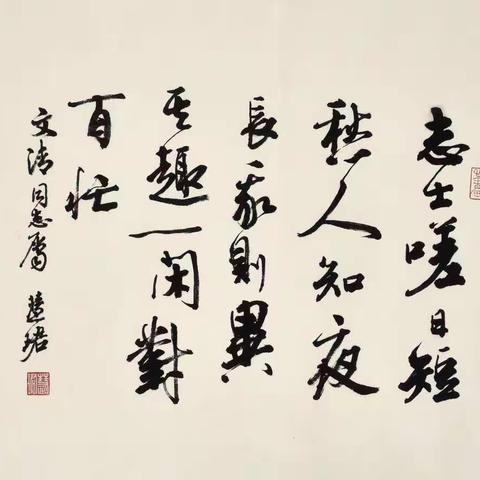 志士嗟日短
愁人知夜
長我則異
其趣一閑對
百忙
文清同志属 慧珺